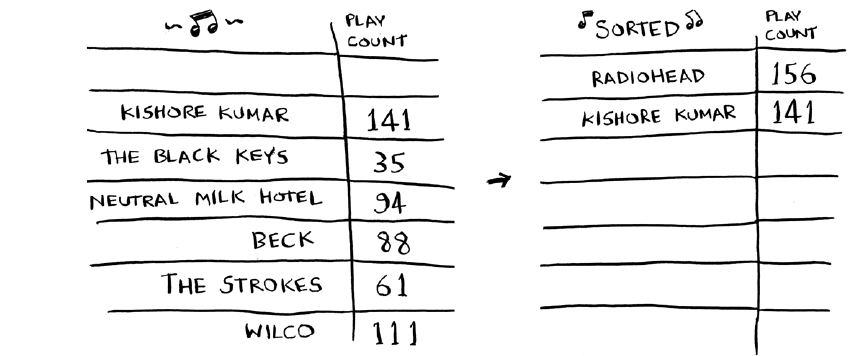 PLAY
COUNT
KISHORE KUMAR 141
THE BLACK KEYS 35
NEUTRAL MILK HOTEL 94
BECK 88
THE STROKES 61
WILCO 111
SORTED PLAY
COUNT
RADIOHEAD 156
KISHORE KUMAR 141